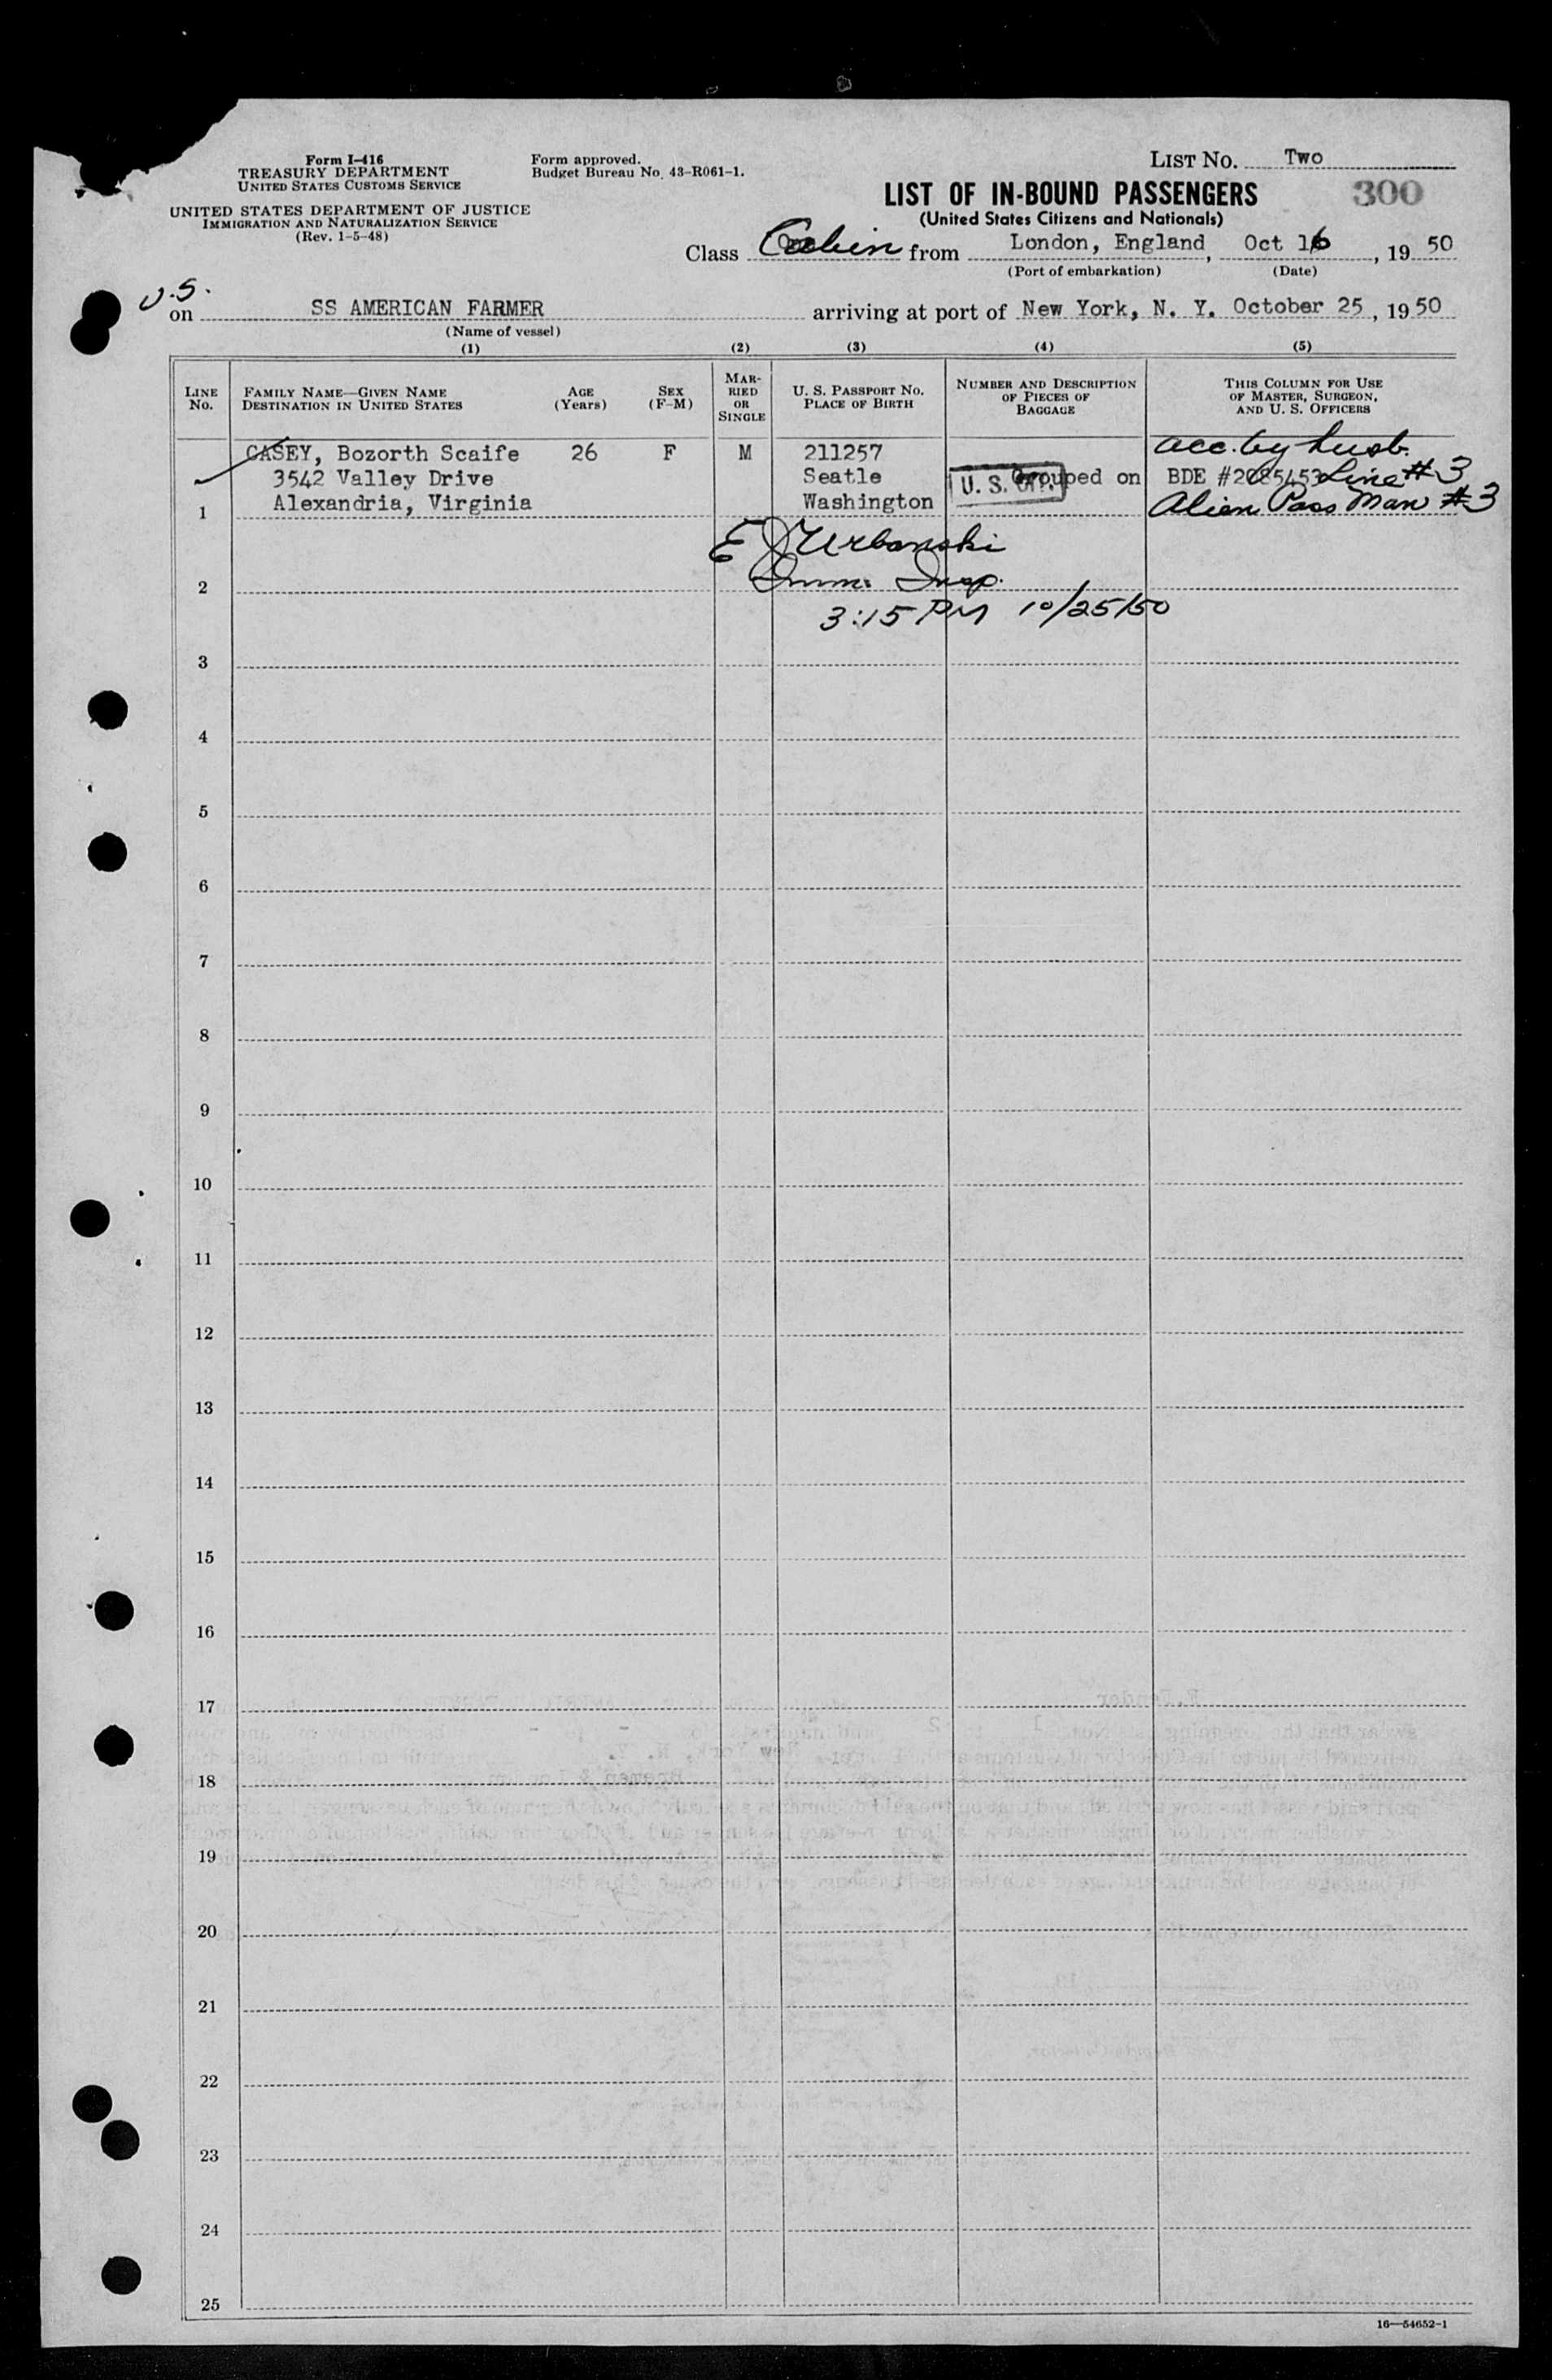 Form I-416
TREASURY DEPARTMENT
UNITED STATES CUSTOMS SERVICE
UNITED STATES DEPARTMENT OF JUSTICE
IMMIGRATION AND NATURALIZATION SERVICE
(Rev. 1-5-48)
Form approved.
Budget Bureau No. 43-R061-1.
LIST No. Two
LIST OF IN-BOUND PASSENGERS 300
(United States Citizens and Nationals)
Class Cabin from London, England, Oct 16, 19 50
(Port of embarkation) (Date)
U.S.
on SS AMERICAN FARMER arriving at port of New York, N. Y. October 25, 19 50
(Name of vessel)
(1) (2) (3) (4) (5)
LINE No.
FAMILY NAME—GIVEN NAME
DESTINATION IN UNITED STATES
AGE (Years)
SEX (F-M)
MARRIED OR SINGLE
U. S. PASSPORT No.
PLACE OF BIRTH
NUMBER AND DESCRIPTION OF PIECES OF BAGGAGE
THIS COLUMN FOR USE OF MASTER, SURGEON, AND U. S. OFFICERS
CASEY, Bozorth Scaife 26 F M 211257 acc. by husb.
3542 Valley Drive Seatle U. S. CIT. Grouped on BDE #2085453 Line #3
1 Alexandria, Virginia Washington Alien Pass Man #3
E J Urbanski
2 Imm. Insp.
3:15 PM 10/25/50
3
4
5
6
7
8
9
10
11
12
13
14
15
16
17
18
19
20
21
22
23
24
25
16—54652-1